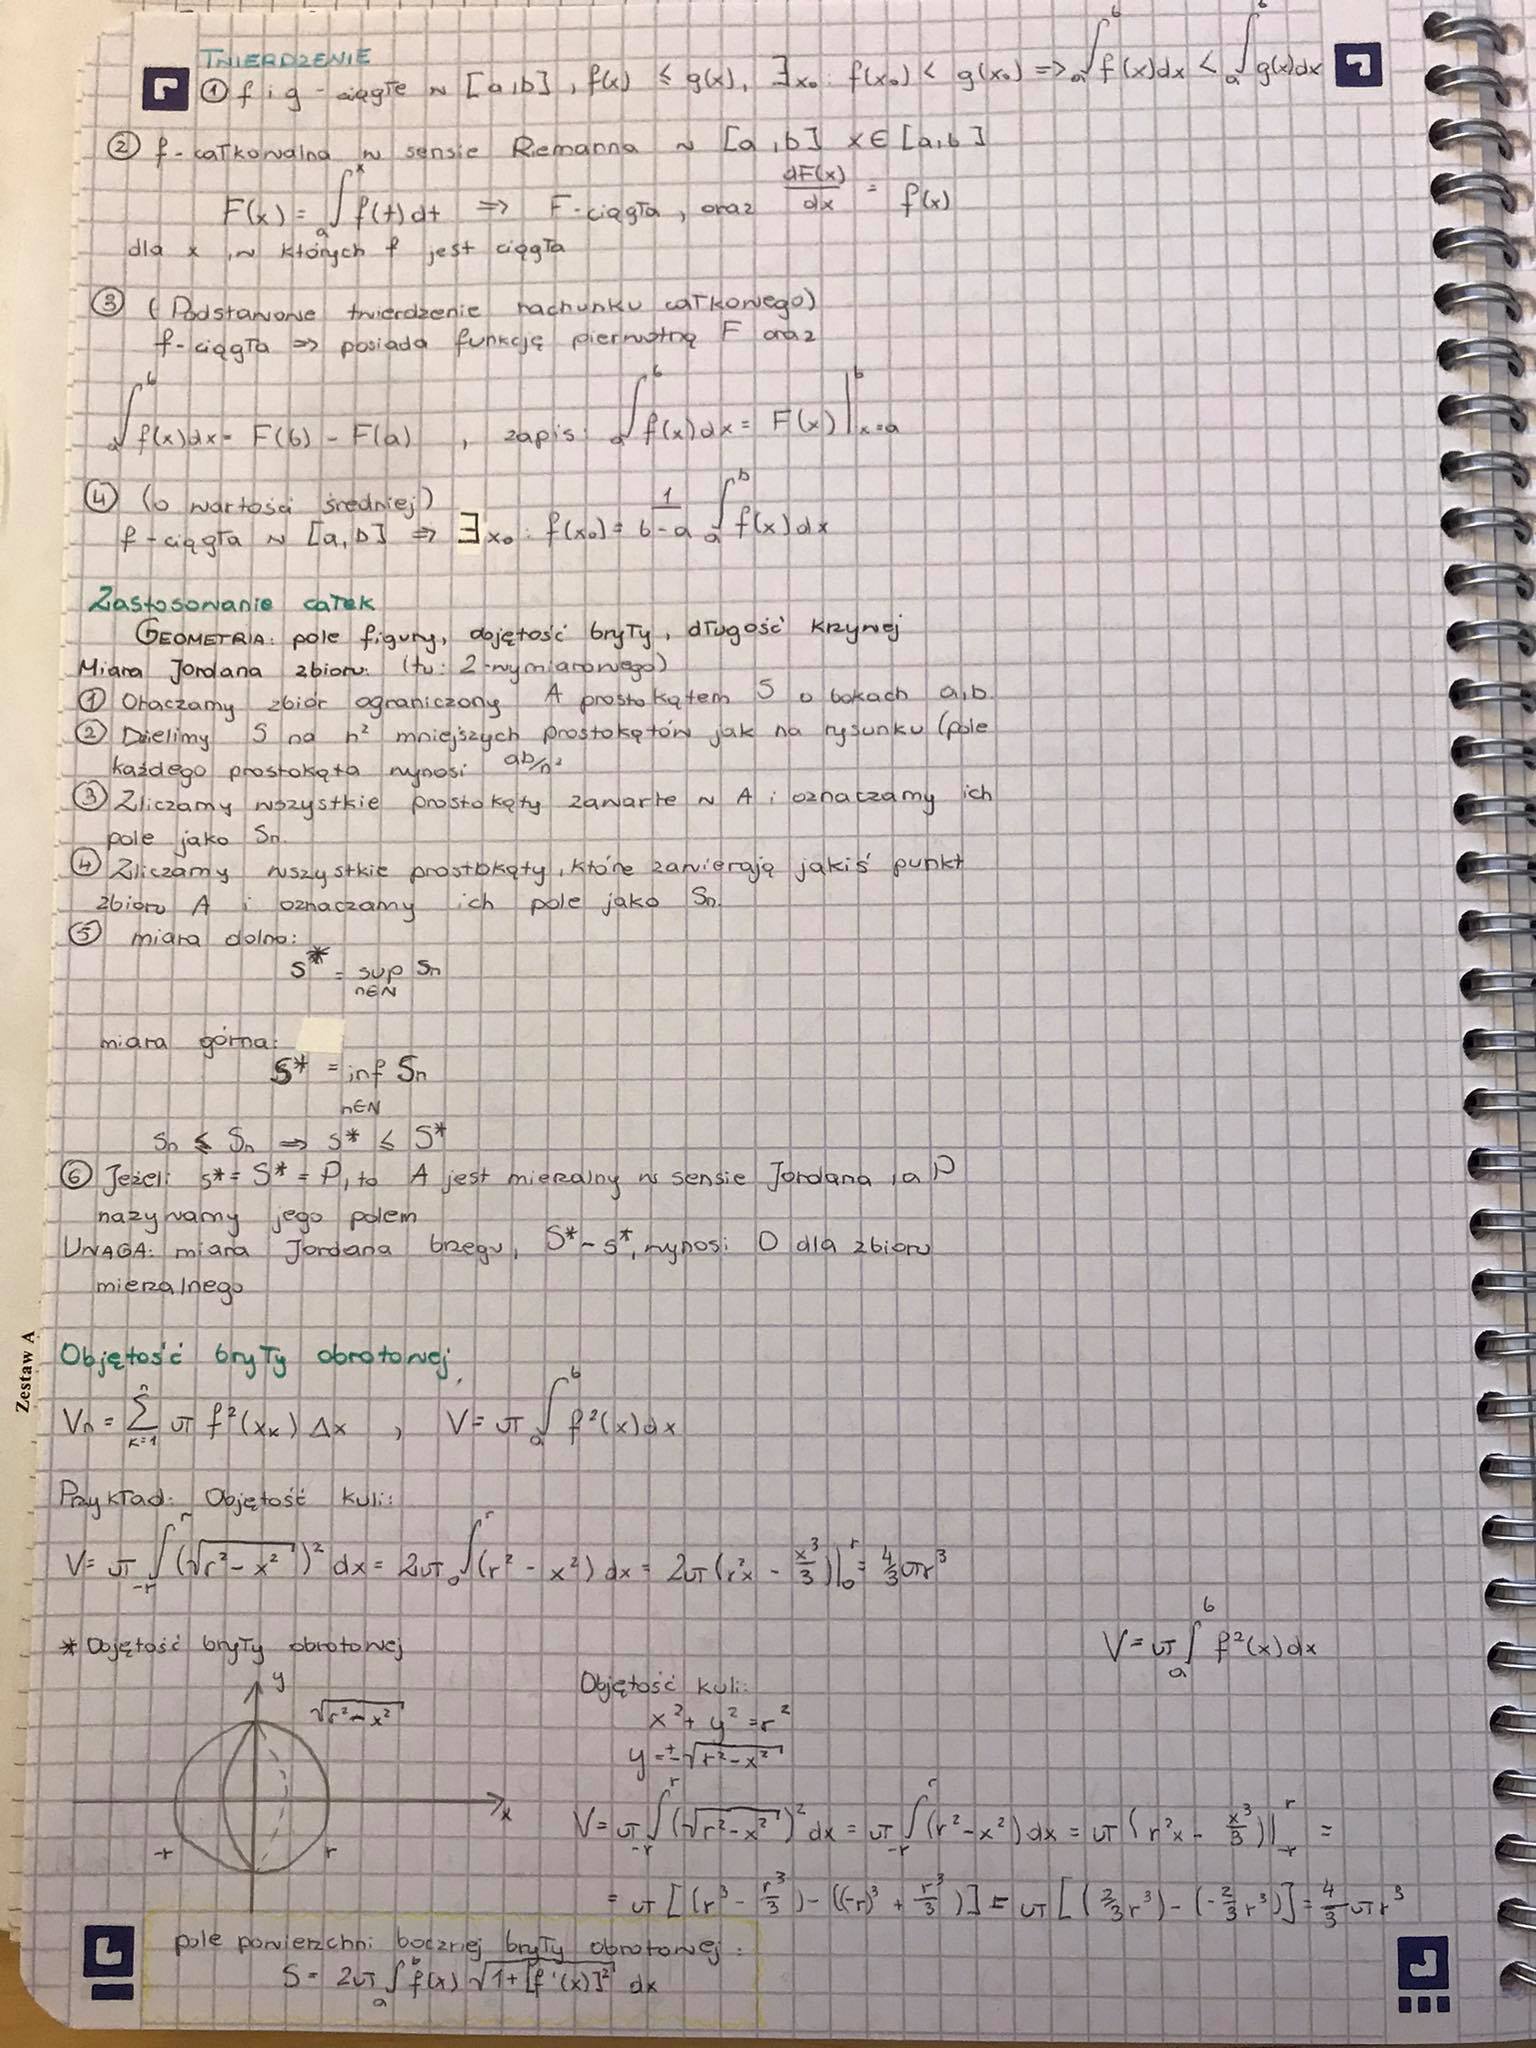 TWIERDZENIE
① f i g - ciągłe w [a,b], f(x) ≤ g(x), ∃x₀: f(x₀) < g(x₀) => ₐ∫ᵇ f(x)dx < ₐ∫ᵇ g(x)dx
② f - całkowalna w sensie Riemanna w [a,b] x∈[a,b]
F(x) = ₐ∫ˣ f(t)dt => F-ciągła, oraz dF(x)/dx = f(x)
dla x, w których f jest ciągła
③ (Podstawowe twierdzenie rachunku całkowego)
f-ciągła => posiada funkcję pierwotną F oraz
ₐ∫ᵇ f(x)dx = F(b) - F(a) , zapis: ₐ∫ᵇ f(x)dx = F(x)|ᵇₓ₌ₐ
④ (o wartości średniej)
f-ciągła w [a,b] => ∃x₀: f(x₀) = 1/(b-a) ₐ∫ᵇ f(x)dx
Zastosowanie całek
GEOMETRIA: pole figury, objętość bryły, długość krzywej
Miara Jordana zbioru: (tu: 2-wymiarowego)
① Otaczamy zbiór ograniczony A prostokątem S o bokach a,b.
② Dzielimy S na n² mniejszych prostokątów jak na rysunku (pole
każdego prostokąta wynosi ab/n²
③ Zliczamy wszystkie prostokąty zawarte w A i oznaczamy ich
pole jako Sn.
④ Zliczamy wszystkie prostokąty, które zawierają jakiś punkt
zbioru A i oznaczamy ich pole jako Sn.
⑤ miara dolna:
s* = sup Sn
n∈N
miara górna:
S* = inf Sn
n∈N
Sn ≤ Sn => s* ≤ S*
⑥ Jeżeli s* = S* = P, to A jest mierzalny w sensie Jordana, a P
nazywamy jego polem
UWAGA: miara Jordana brzegu, S*-s*, wynosi 0 dla zbioru
mierzalnego
Zestaw A
Objętość bryły obrotowej
Vn = Σₖ₌₁ⁿ π f²(xₖ) Δx , V = π ₐ∫ᵇ f²(x)dx
Przykład: Objętość kuli:
V = π ₋ᵣ∫ʳ (√(r²-x²))² dx = 2π ₀∫ʳ (r² - x²) dx = 2π (r²x - x³/3)|₀ʳ = 4/3 πr³
* Objętość bryły obrotowej
V = π ₐ∫ᵇ f²(x)dx
y
√(r²-x²)
x
-r
r
Objętość kuli:
x² + y² = r²
y = ±√(r²-x²)
V = π ₋ᵣ∫ʳ (√(r²-x²))² dx = π ₋ᵣ∫ʳ (r²-x²) dx = π (r²x - x³/3)|₋ᵣʳ =
= π [(r³ - r³/3) - ((-r)³ + r³/3)] = π [(2/3 r³) - (-2/3 r³)] = 4/3 πr³
pole powierzchni bocznej bryły obrotowej:
S = 2π ₐ∫ᵇ f(x) √(1+[f'(x)]²) dx